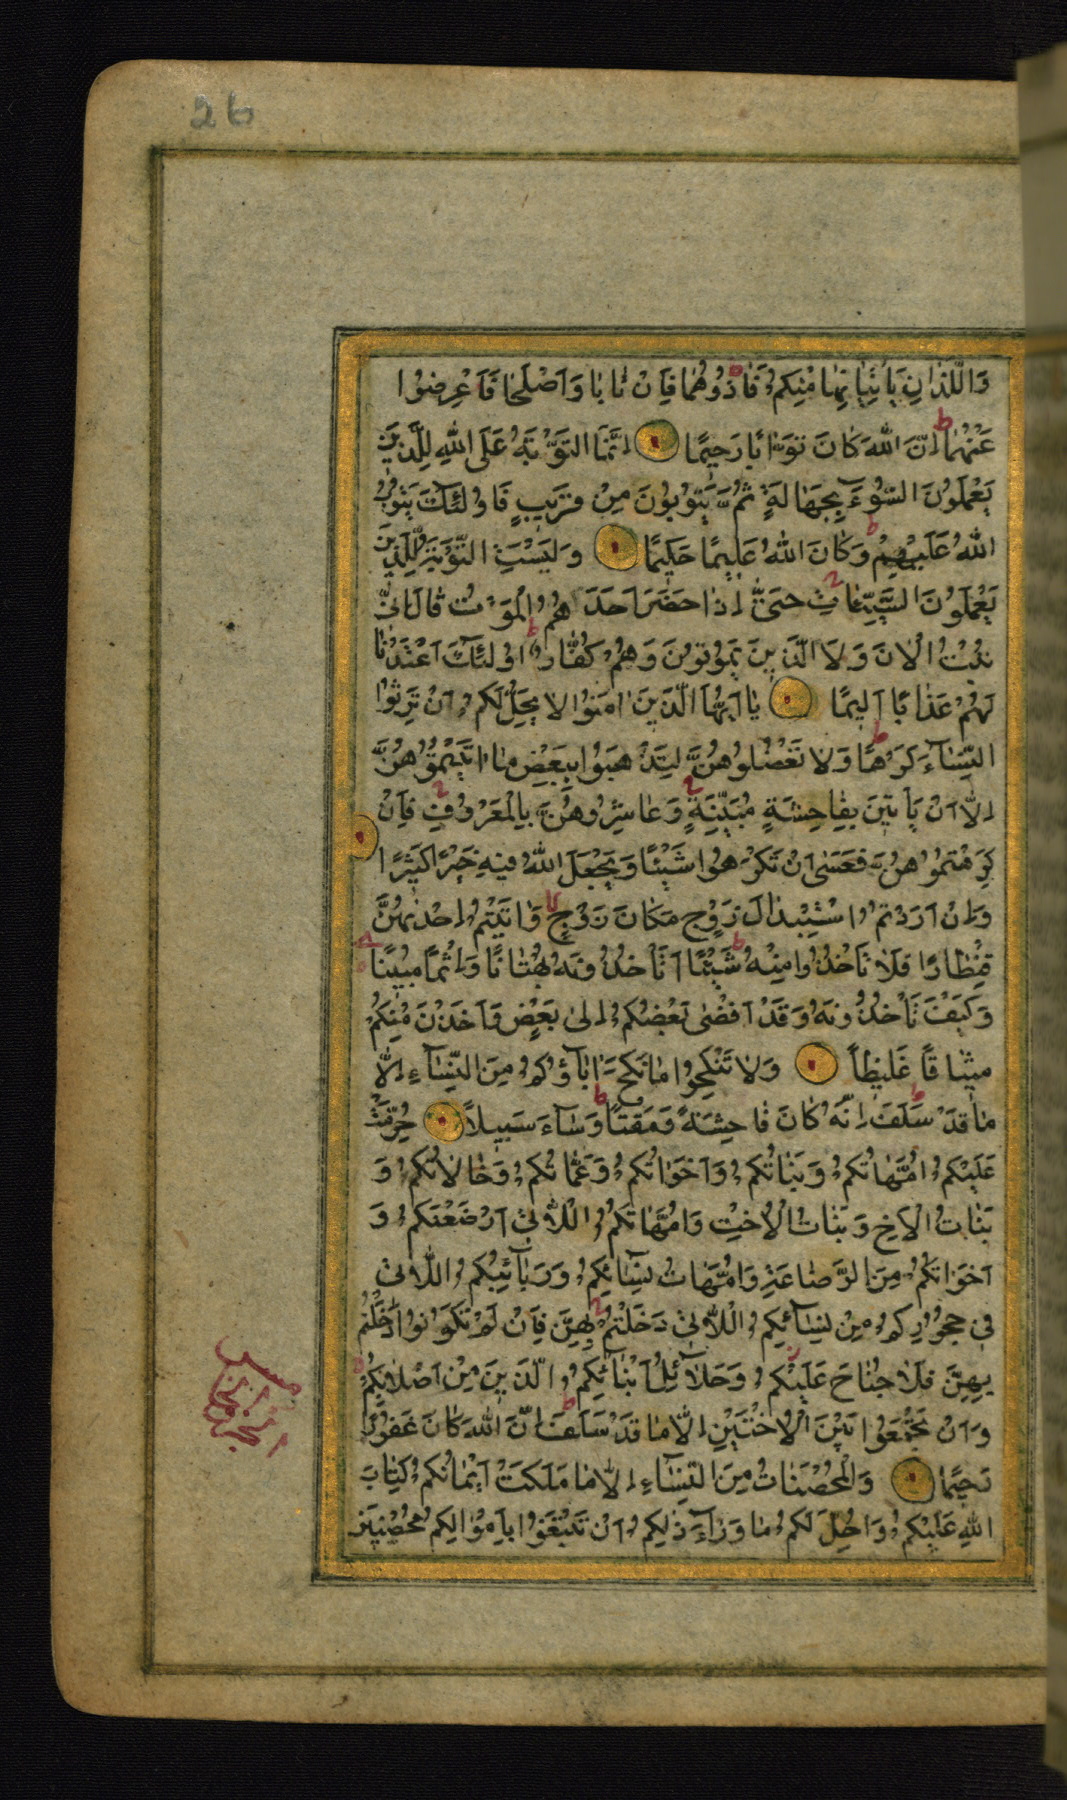 26
وَالَّذَانِ يَأْتِيَانِهَا مِنْكُمْ فَاٰذُوهُمَا فَاِنْ تَابَا وَاَصْلَحَا فَاَعْرِضُوا
عَنْهُمَا اِنَّ اللهَ كَانَ تَوَّابًا رَحِيمًا اِنَّمَا التَّوْبَةُ عَلَى اللهِ لِلَّذِينَ
يَعْمَلُونَ السُّوءَ بِجَهَالَةٍ ثُمَّ يَتُوبُونَ مِنْ قَرِيبٍ فَاُولٰئِكَ يَتُوبُ
اللهُ عَلَيْهِمْ وَكَانَ اللهُ عَلِيمًا حَكِيمًا وَلَيْسَتِ التَّوْبَةُ لِلَّذِينَ
يَعْمَلُونَ السَّيِّئَاتِ حَتَّىٰ اِذَا حَضَرَ اَحَدَهُمُ الْمَوْتُ قَالَ اِنِّي
تُبْتُ الْاٰنَ وَلَا الَّذِينَ يَمُوتُونَ وَهُمْ كُفَّارٌ اُولٰئِكَ اَعْتَدْنَا
لَهُمْ عَذَابًا اَلِيمًا يَا اَيُّهَا الَّذِينَ اٰمَنُوا لَا يَحِلُّ لَكُمْ اَنْ تَرِثُوا
النِّسَاءَ كَرْهًا وَلَا تَعْضُلُوهُنَّ لِتَذْهَبُوا بِبَعْضِ مَا اٰتَيْتُمُوهُنَّ
اِلَّا اَنْ يَأْتِينَ بِفَاحِشَةٍ مُبَيِّنَةٍ وَعَاشِرُوهُنَّ بِالْمَعْرُوفِ فَاِنْ
كَرِهْتُمُوهُنَّ فَعَسَىٰ اَنْ تَكْرَهُوا شَيْئًا وَيَجْعَلَ اللهُ فِيهِ خَيْرًا كَثِيرًا
وَاِنْ اَرَدْتُمُ اسْتِبْدَالَ زَوْجٍ مَكَانَ زَوْجٍ وَاٰتَيْتُمْ اِحْدٰيهُنَّ
قِنْطَارًا فَلَا تَأْخُذُوا مِنْهُ شَيْئًا اَتَأْخُذُونَهُ بُهْتَانًا وَاِثْمًا مُبِينًا
وَكَيْفَ تَأْخُذُونَهُ وَقَدْ اَفْضٰى بَعْضُكُمْ اِلٰى بَعْضٍ وَاَخَذْنَ مِنْكُمْ
مِيثَاقًا غَلِيظًا وَلَا تَنْكِحُوا مَا نَكَحَ اٰبَاؤُكُمْ مِنَ النِّسَاءِ اِلَّا
مَا قَدْ سَلَفَ اِنَّهُ كَانَ فَاحِشَةً وَمَقْتًا وَسَاءَ سَبِيلًا حُرِّمَتْ
عَلَيْكُمْ اُمَّهَاتُكُمْ وَبَنَاتُكُمْ وَاَخَوَاتُكُمْ وَعَمَّاتُكُمْ وَخَالَاتُكُمْ وَ
بَنَاتُ الْاَخِ وَبَنَاتُ الْاُخْتِ وَاُمَّهَاتُكُمُ اللَّاتِي اَرْضَعْنَكُمْ وَ
اَخَوَاتُكُمْ مِنَ الرَّضَاعَةِ وَاُمَّهَاتُ نِسَائِكُمْ وَرَبَائِبُكُمُ اللَّاتِي
فِي حُجُورِكُمْ مِنْ نِسَائِكُمُ اللَّاتِي دَخَلْتُمْ بِهِنَّ فَاِنْ لَمْ تَكُونُوا دَخَلْتُمْ
بِهِنَّ فَلَا جُنَاحَ عَلَيْكُمْ وَحَلَائِلُ اَبْنَائِكُمُ الَّذِينَ مِنْ اَصْلَابِكُمْ
وَاَنْ تَجْمَعُوا بَيْنَ الْاُخْتَيْنِ اِلَّا مَا قَدْ سَلَفَ اِنَّ اللهَ كَانَ غَفُورًا
رَحِيمًا وَالْمُحْصَنَاتُ مِنَ النِّسَاءِ اِلَّا مَا مَلَكَتْ اَيْمَانُكُمْ كِتَابَ
اللهِ عَلَيْكُمْ وَاُحِلَّ لَكُمْ مَا وَرَاءَ ذٰلِكُمْ اَنْ تَبْتَغُوا بِاَمْوَالِكُمْ مُحْصِنِينَ
الجزو الخامس